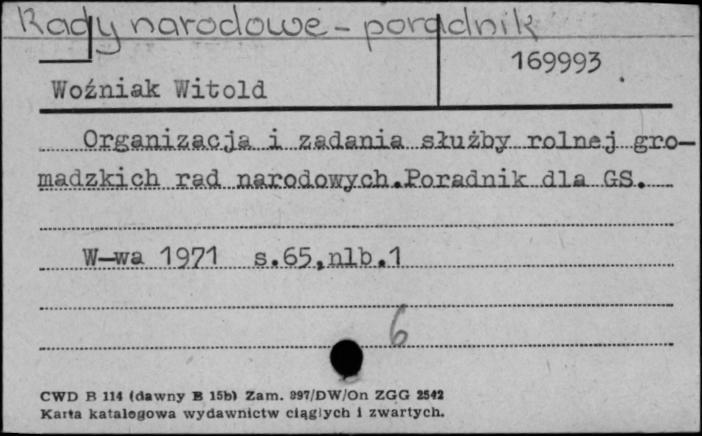 Rady narodowe - poradnik
169993
Woźniak Witold
Organizacja i zadania służby rolnej gro-
madzkich rad narodowych.Poradnik dla GS.
W-wa 1971 s.65,nlb.1
6
CWD B 114 (dawny B 15b) Zam. 997/DW/On ZGG 2542
Karta katalogowa wydawnictw ciągłych i zwartych.